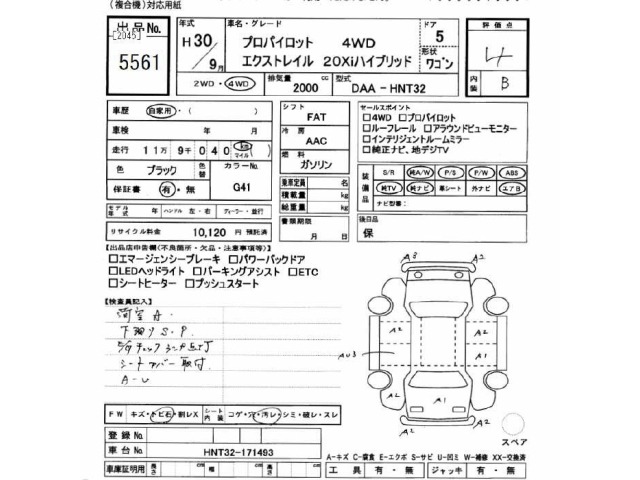 (複合機)対応用紙
出品No.
[2045]
5561
年式
H30/9月
車名・グレード
プロパイロット 4WD
エクストレイル 20Xiハイブリッド
ドア
5
形状
ワゴン
評価点
4
内装
B
2WD・4WD
排気量
2000 cc
型式
DAA-HNT32
車歴 自家用・( )
車検 年 月
走行 11万9千040 km マイル
色 ブラック 色替 カラーNo. G41
保証書 有・無
モデル年式 年 ハンドル 左・右 ディーラー・並行
リサイクル料金 10,120 円 預託済
シフト
FAT
冷房
AAC
燃料
ガソリン
乗車定員 名
積載量 kg
総重量 kg
書類期限
月 日
セールスポイント
□4WD □プロパイロット
□ルーフレール □アラウンドビューモニター
□インテリジェントルームミラー
□純正ナビ、地デジTV
装備品
S/R 純A/W P/S P/W ABS
純TV 純ナビ 革シート 外ナビ エアB
ナビ型番:
後日品
保
【出品店申告欄(不良箇所・欠品・注意事項等)】
□エマージェンシーブレーキ □パワーバックドア
□LEDヘッドライト □パーキングアシスト □ETC
□シートヒーター □プッシュスタート
【検査員記入】
下廻りS.P
シートカバー取付
A-U
A3 A2
A2 A2
AU3 A1
A2 A1 A1
A2
スペア
FW キズ・トビ石・割レス シート内装 コゲ・穴・汚レ・シミ・破レ・スレ
登録No.
車台No. HNT32-171493
車庫証明用 長さ cm 幅 cm 高さ cm
A-キズ C-腐食 E-エクボ S-サビ U-凹ミ W-補修 XX-交換済
工具 有・無 ジャッキ 有・無